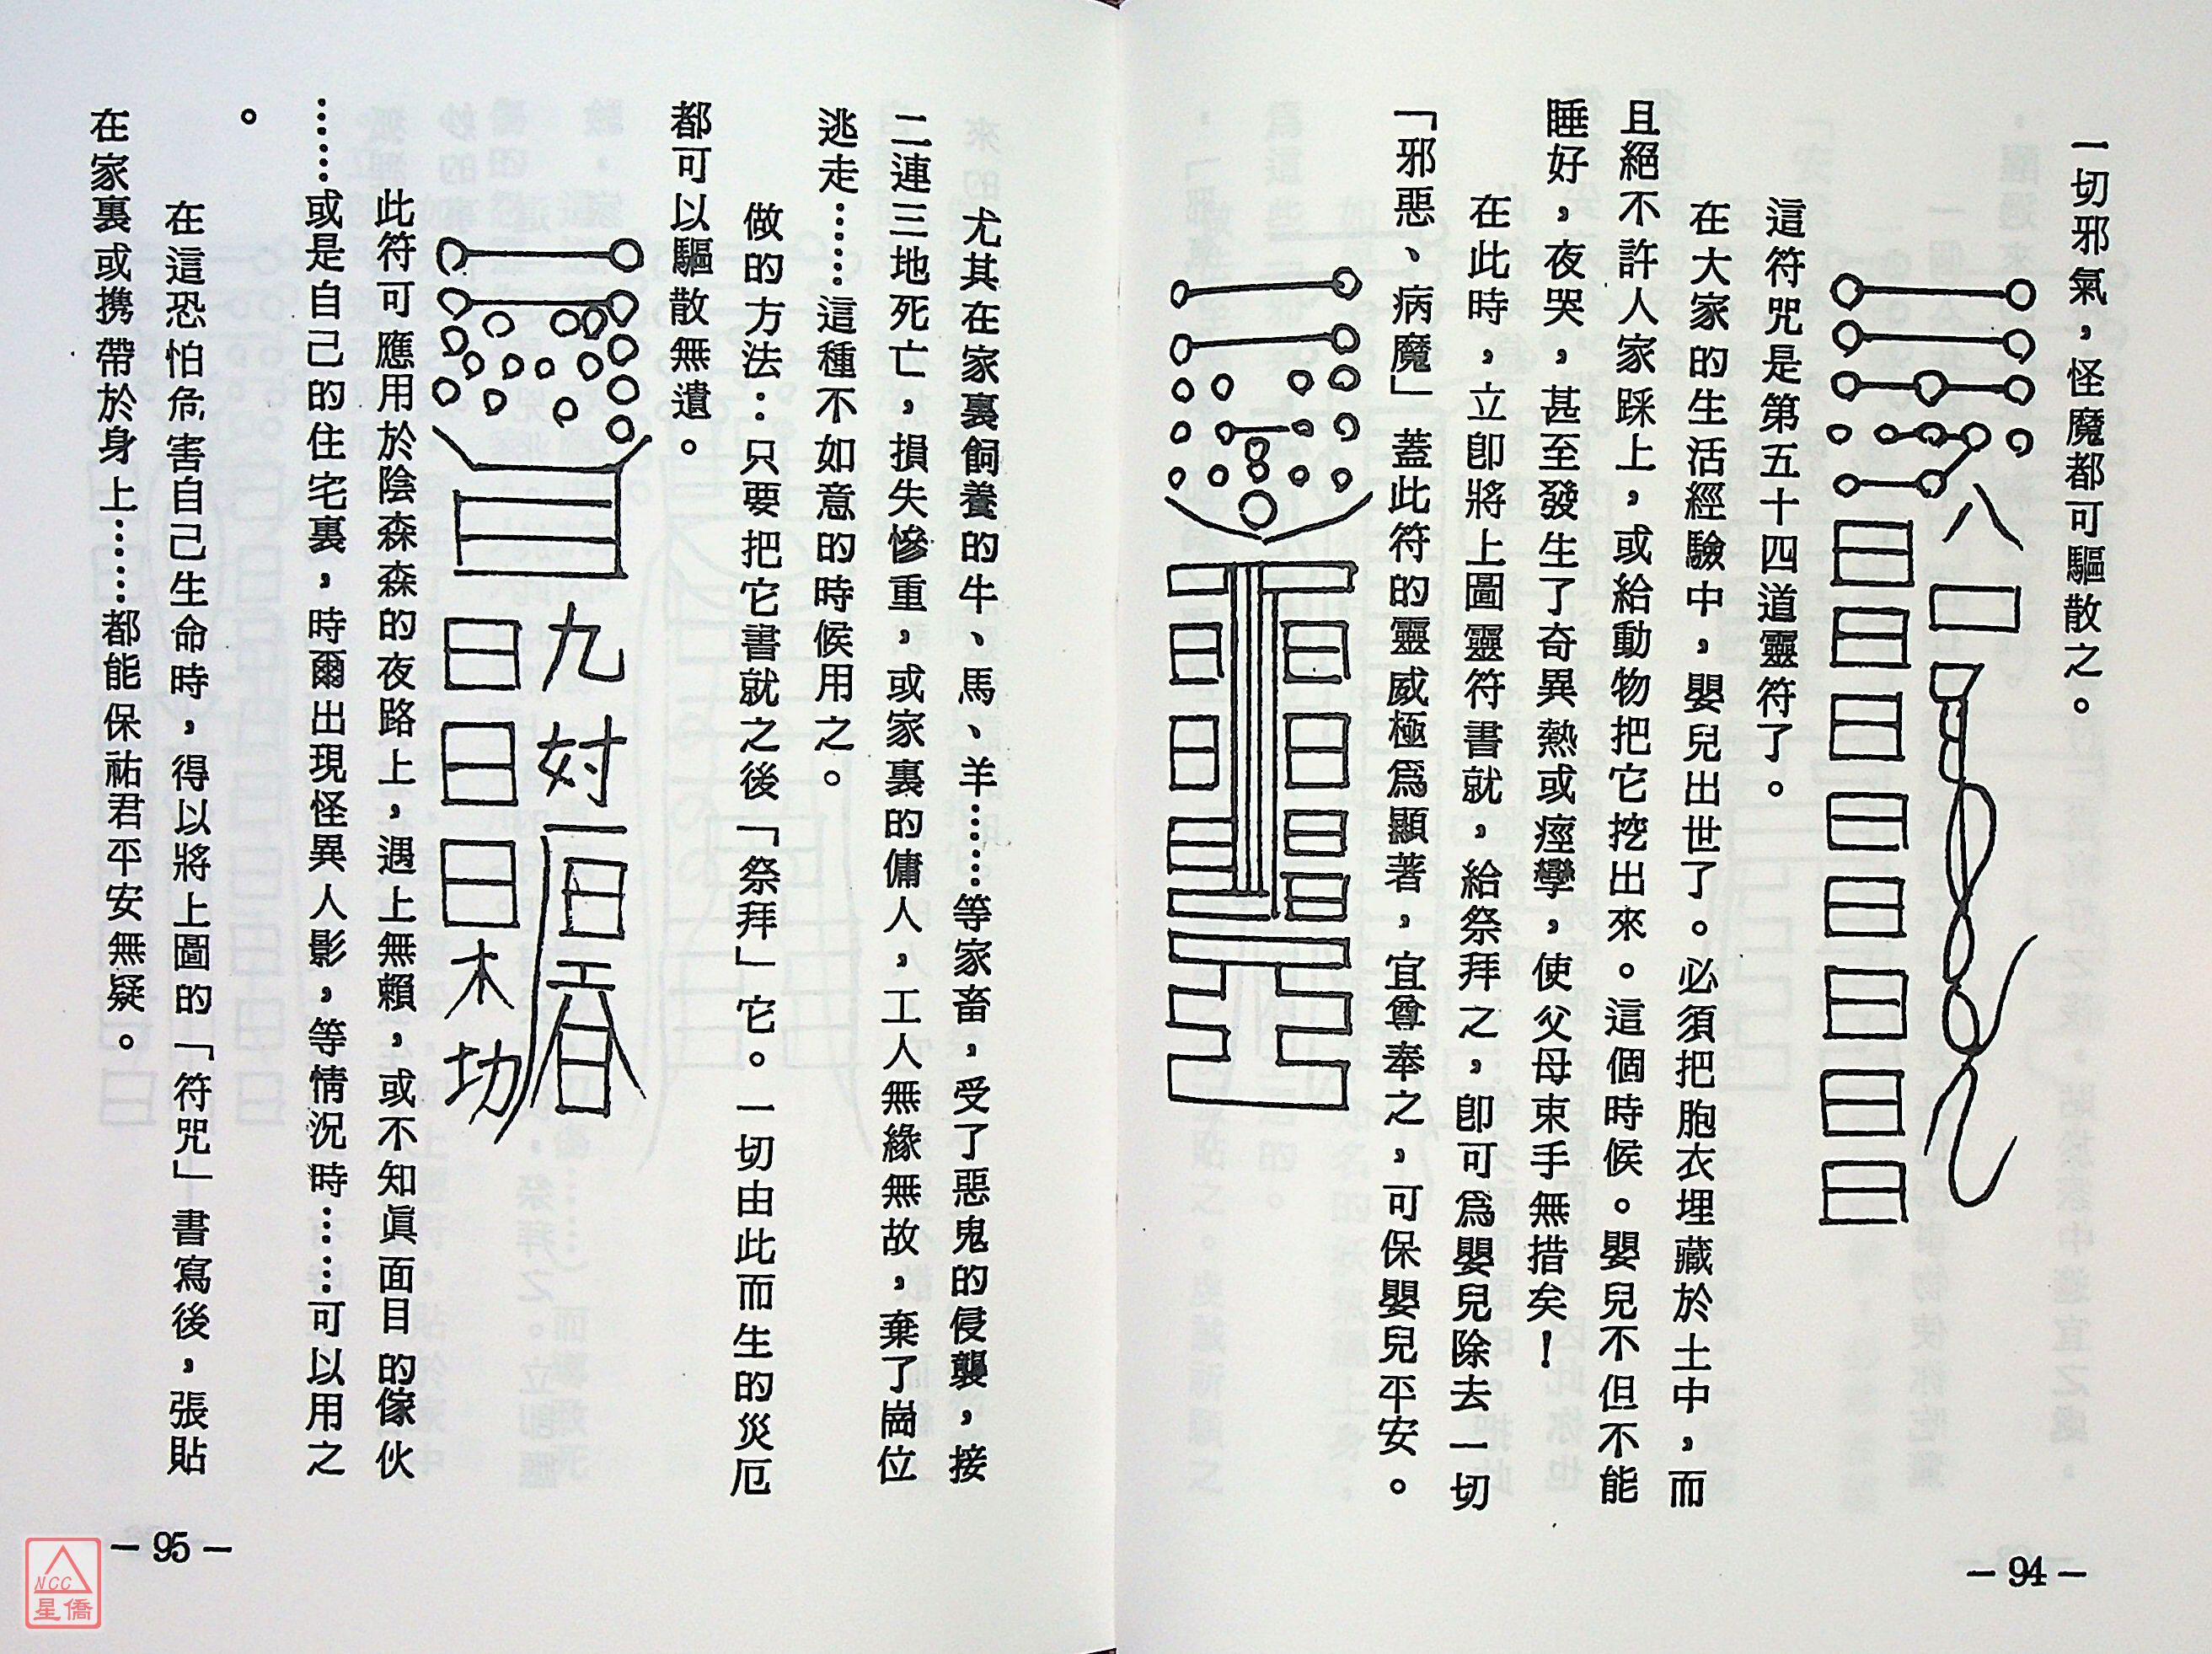 一切邪氣，怪魔都可驅散之。
這符咒是第五十四道靈符了。
在大家的生活經驗中，嬰兒出世了。必須把胞衣埋藏於土中，而
且絕不許人家踩上，或給動物把它挖出來。這個時候。嬰兒不但不能
睡好，夜哭，甚至發生了奇異熱或痙攣，使父母束手無措矣！
在此時，立卽將上圖靈符書就，給祭拜之，卽可爲嬰兒除去一切
「邪惡、病魔」蓋此符的靈威極爲顯著，宜尊奉之，可保嬰兒平安。
— 94 —
尤其在家裏飼養的牛、馬、羊……等家畜，受了惡鬼的侵襲，接
二連三地死亡，損失慘重，或家裏的傭人，工人無緣無故，棄了崗位
逃走……這種不如意的時候用之。
做的方法：只要把它書就之後「祭拜」它。一切由此而生的災厄
都可以驅散無遺。
九
日日日木
此符可應用於陰森森的夜路上，遇上無賴，或不知眞面目的傢伙
……或是自己的住宅裏，時爾出現怪異人影，等情況時……可以用之
。
在這恐怕危害自己生命時，得以將上圖的「符咒」書寫後，張貼
在家裏或携帶於身上……都能保祐君平安無疑。
— 95 —
NCC
星僑